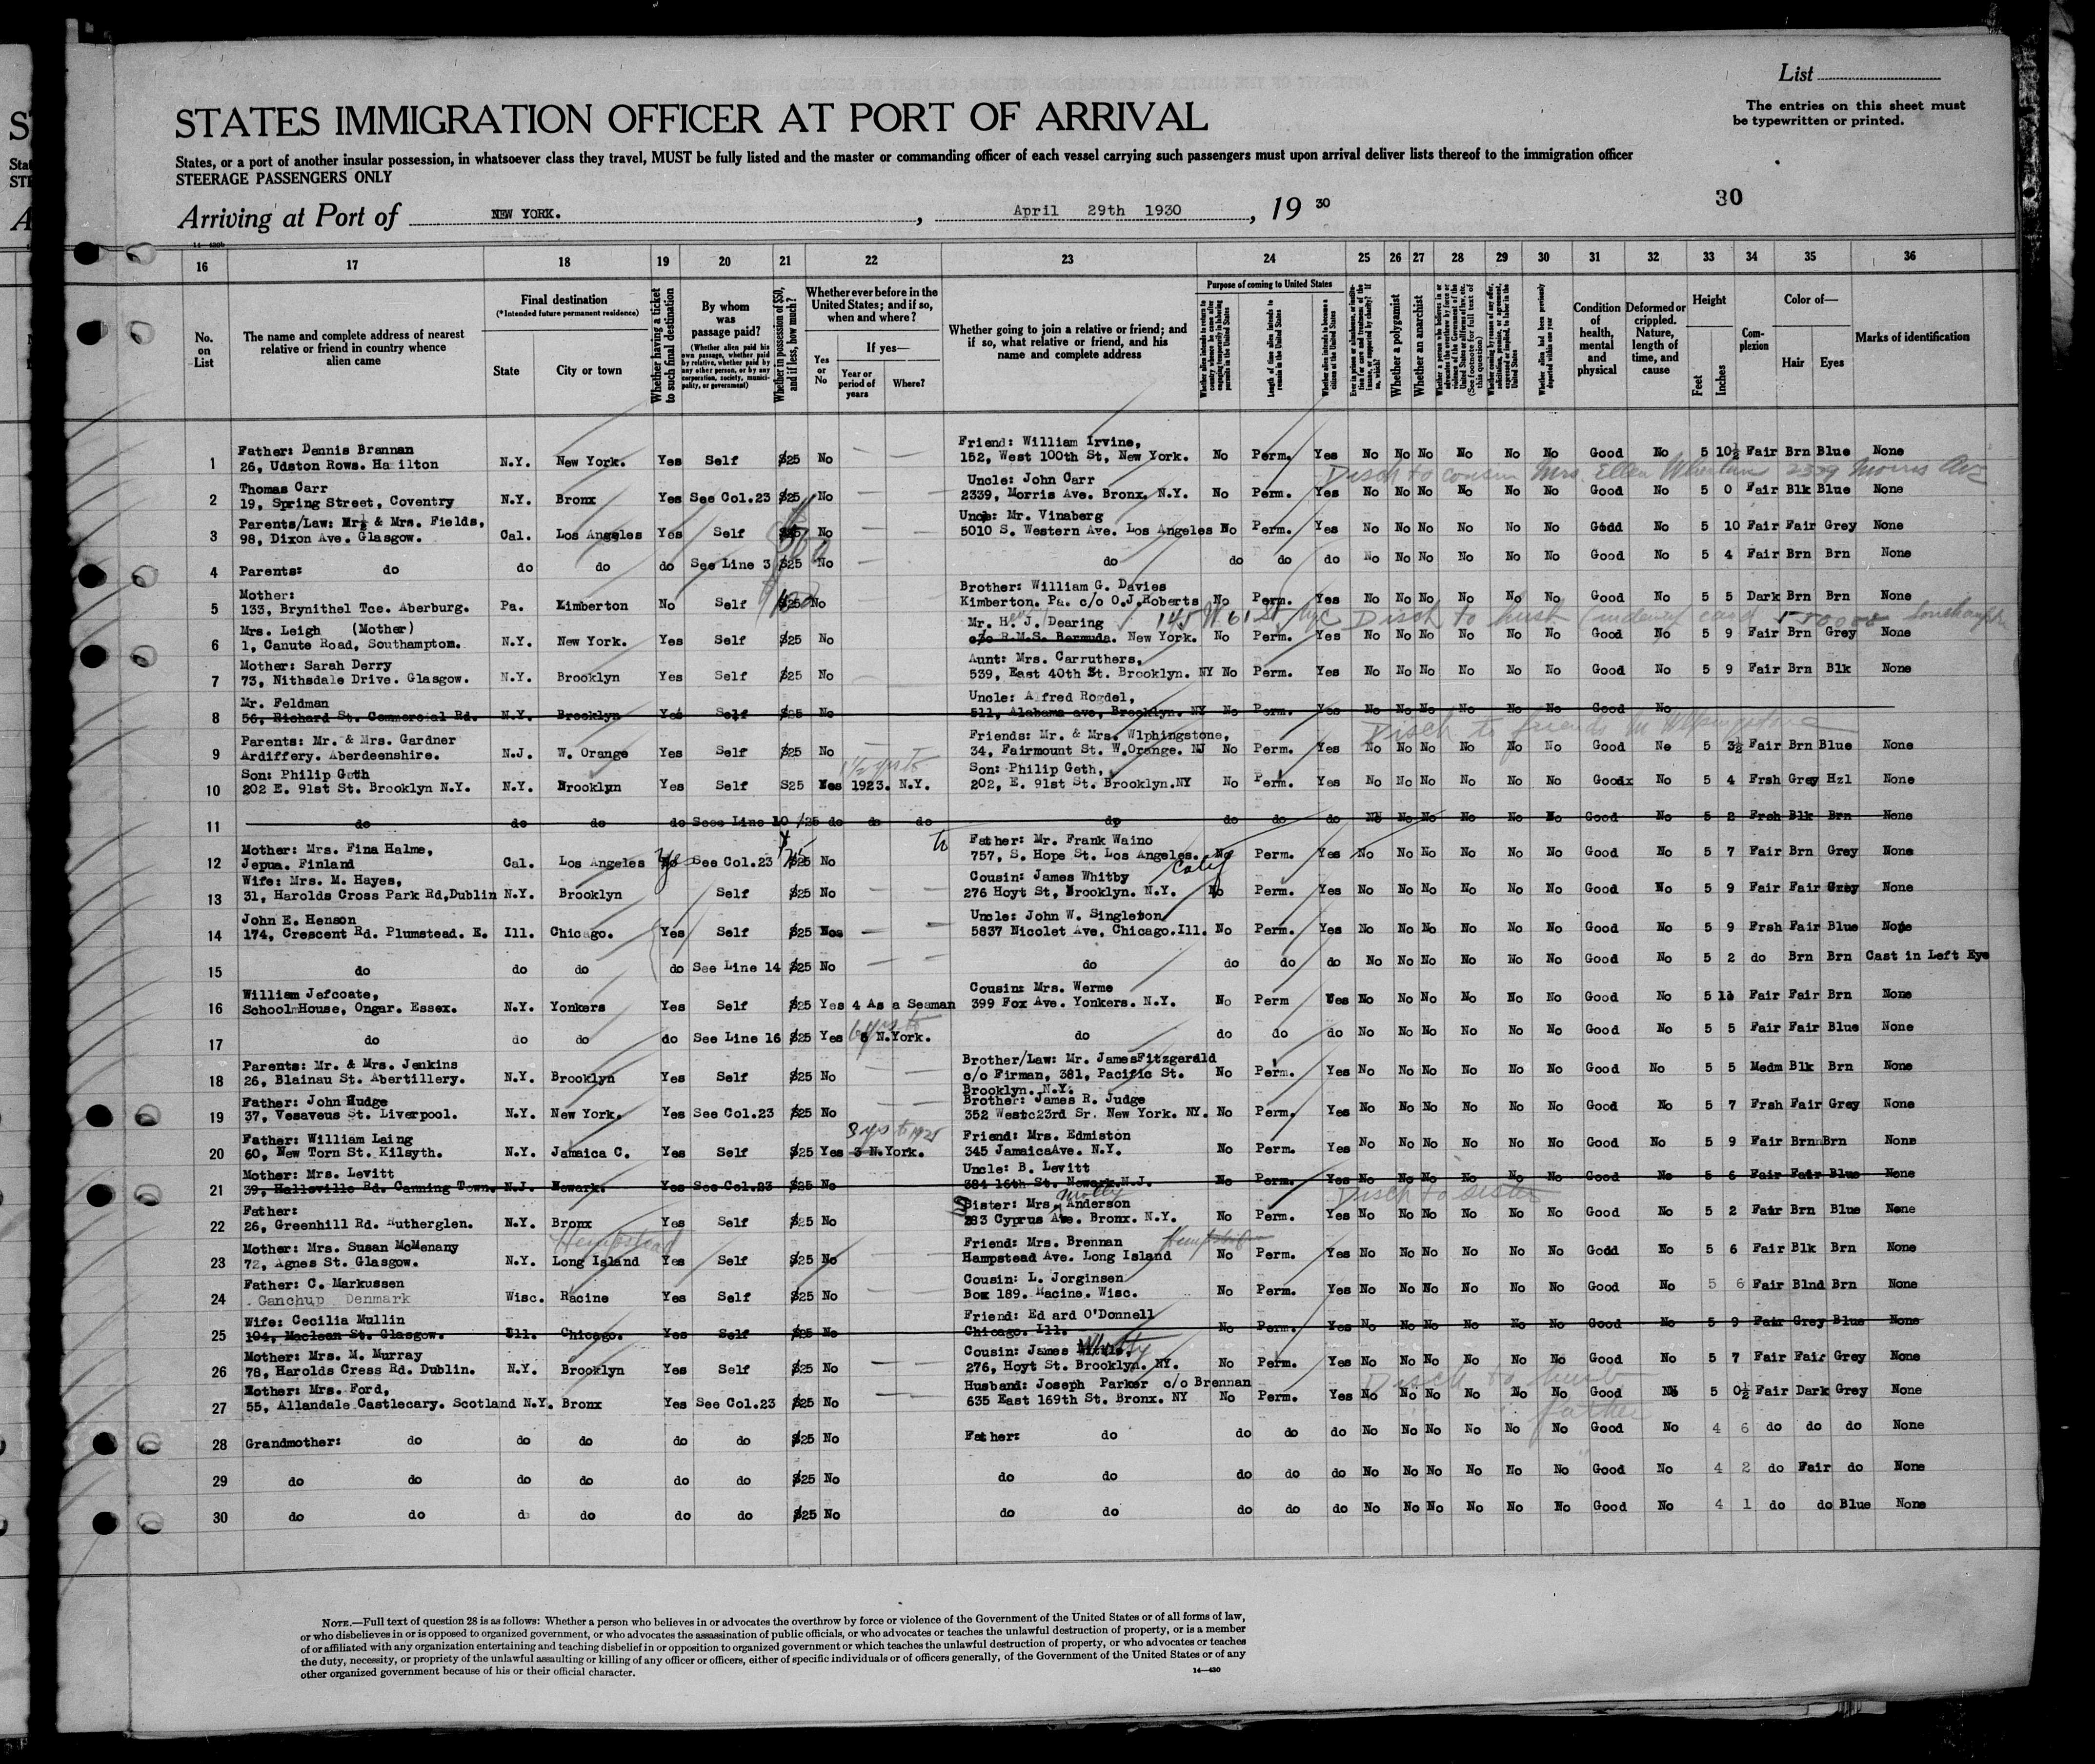 List
The entries on this sheet must
be typewritten or printed.
STATES IMMIGRATION OFFICER AT PORT OF ARRIVAL
States, or a port of another insular possession, in whatsoever class they travel, MUST be fully listed and the master or commanding officer of each vessel carrying such passengers must upon arrival deliver lists thereof to the immigration officer
STEERAGE PASSENGERS ONLY
30
Arriving at Port of NEW YORK. , April 29th 1930 , 19 30
16 17 18 19 20 21 22 23 24 25 26 27 28 29 30 31 32 33 34 35 36
No. on List
The name and complete address of nearest relative or friend in country whence alien came
Final destination
(*Intended future permanent residence)
State City or town
Whether having a ticket to such final destination
By whom was passage paid?
(Whether alien paid his own passage, whether paid by relative, whether paid by any other person, or by any corporation, society, municipality, or government)
Whether in possession of $50, and if less, how much?
Whether ever before in the United States; and if so, when and where?
Yes or No
If yes—
Year or period of years
Where?
Whether going to join a relative or friend; and if so, what relative or friend, and his name and complete address
Purpose of coming to United States
Length of time alien intends to remain in the United States
Whether alien intends to become a citizen of the United States
Whether a polygamist
Whether an anarchist
Whether alien had been previously deported within one year
Condition of health, mental and physical
Deformed or crippled. Nature, length of time, and cause
Height
Feet Inches
Complexion
Color of—
Hair Eyes
Marks of identification
Father: Dennis Brennan Friend: William Irvine,
1 26, Udston Rows. Hamilton N.Y. New York. Yes Self $25 No — — 152, West 100th St, New York. No Perm. Yes No No No No No No Good No 5 10½ Fair Brn Blue None
Disch to cousin Mrs. Ellen 2339 Morris Ave
Thomas Carr Uncle: John Carr
2 19, Spring Street, Coventry N.Y. Bronx Yes See Col.23 $25 No 2339, Morris Ave. Bronx. N.Y. No Perm. Yes No No No No No No Good No 5 0 Fair Blk Blue None
Parents/Law: Mr. & Mrs. Fields, Uncle: Mr. Vinaberg
3 98, Dixon Ave. Glasgow. Cal. Los Angeles Yes Self No 5010 S. Western Ave. Los Angeles No Perm. Yes No No No No No No Good No 5 10 Fair Fair Grey None
4 Parents: do do do do See Line 3 $25 No do do do do No No No No No No Good No 5 4 Fair Brn Brn None
Mother: Brother: William G. Davies
5 133, Brynithel Tce. Aberburg. Pa. Kimberton No Self $25 No Kimberton. Pa. c/o O.J.Roberts No Perm. Yes No No No No No No Good No 5 5 Dark Brn Brn None
145 W 61 St NYC Disch to husb
Mrs. Leigh (Mother) Mr. H. J. Dearing
6 1, Canute Road, Southampton. N.Y. New York. Yes Self $25 No c/o R.M.S. Bermuda. New York. No Perm. Yes No No No No No No Good No 5 9 Fair Brn Grey None
Mother: Sarah Derry Aunt: Mrs. Carruthers,
7 73, Nithsdale Drive. Glasgow. N.Y. Brooklyn Yes Self $25 No 539, East 40th St. Brooklyn. NY No Perm. Yes No No No No No No Good No 5 9 Fair Brn Blk None
Mr. Feldman Uncle: Alfred Rogdel,
8 56, Richard St. Commercial Rd. N.Y. Brooklyn Yes Self $25 No 511, Alabama ave, Brooklyn. NY No Perm. Yes No No No No No No Good No
Disch to friends
Parents: Mr. & Mrs. Gardner Friends: Mr. & Mrs. Wlphingstone,
9 Ardiffery. Aberdeenshire. N.J. W. Orange Yes Self $25 No 34, Fairmount St. W.Orange. NJ No Perm. Yes No No No No No No Good No 5 3½ Fair Brn Blue None
Son: Philip Geth Son: Philip Geth,
10 202 E. 91st St. Brooklyn N.Y. N.Y. Brooklyn Yes Self $25 Yes 1923. N.Y. 202, E. 91st St. Brooklyn.NY No Perm. Yes No No No No No No Good No 5 4 Frsh Grey Hzl None
11 do do do do See Line 10 /25 do do do do do do do No No No No No No Good No 5 2 Frsh Blk Brn None
Mother: Mrs. Fina Halme, Father: Mr. Frank Waino
12 Jepua. Finland Cal. Los Angeles Yes See Col.23 $25 No 757, S. Hope St. Los Angeles. Calif No Perm. Yes No No No No No No Good No 5 7 Fair Brn Grey None
Wife: Mrs. M. Hayes, Cousin: James Whitby
13 31, Harolds Cross Park Rd,Dublin N.Y. Brooklyn Self $25 No 276 Hoyt St, Brooklyn. N.Y. No Perm. Yes No No No No No No Good No 5 9 Fair Fair Grey None
John E. Henson Uncle: John W. Singleton
14 174, Crescent Rd. Plumstead. E. Ill. Chicago. Yes Self $25 5837 Nicolet Ave, Chicago.Ill. No Perm. Yes No No No No No No Good No 5 9 Frsh Fair Blue None
15 do do do do See Line 14 $25 No do do do do No No No No No No Good No 5 2 do Brn Brn Cast in Left Eye
William Jefcoate, Cousin: Mrs. Werme
16 School House, Ongar. Essex. N.Y. Yonkers Yes Self $25 Yes 4 As a Seaman 399 Fox Ave. Yonkers. N.Y. No Perm Yes No No No No No No Good No 5 Fair Fair Brn None
17 do do do do See Line 16 $25 Yes 6 N.York. do do do do No No No No No No Good No 5 5 Fair Fair Blue None
Parents: Mr. & Mrs. Jenkins Brother/Law: Mr. James Fitzgerald
18 26, Blainau St. Abertillery. N.Y. Brooklyn Yes Self $25 No c/o Firman, 381, Pacific St. No Perm. Yes No No No No No No Good No 5 5 Medm Blk Brn None
Brooklyn. N.Y.
Father: John Hudge Brother: James R. Judge
19 37, Vesaveus St. Liverpool. N.Y. New York. Yes See Col.23 $25 No 352 Westc23rd Sr. New York. NY. No Perm. Yes No No No No No No Good No 5 7 Frsh Fair Grey None
3 yrs to 1925
Father: William Laing Friend: Mrs. Edmiston
20 60, New Torn St. Kilsyth. N.Y. Jamaica C. Yes Self $25 Yes 3 N.York. 345 JamaicaAve. N.Y. No Perm. Yes No No No No No No Good No 5 9 Fair Brn Brn None
Mother: Mrs. Levitt Uncle: B. Levitt
21 39, Hallsville Rd. Canning Town. N.J. Newark. Yes See Col.23 $25 No 384 16th St. Newark.N.J. No Perm. Yes No No No No No No Good No 5 6 Fair Fair Blue None
Disch to sister
Father: Sister: Mrs. Molly Anderson
22 26, Greenhill Rd. Rutherglen. N.Y. Bronx Yes Self $25 No 283 Cyprus Ave. Bronx. N.Y. No Perm. Yes No No No No No No Good No 5 2 Fair Brn Blue None
Hempstead
Mother: Mrs. Susan McMenany Friend: Mrs. Brennan
23 72, Agnes St. Glasgow. N.Y. Long Island Yes Self $25 No Hempstead Ave. Long Island No Perm. Yes No No No No No No Good No 5 6 Fair Blk Brn None
Father: C. Markussen Cousin: L. Jorginsen
24 Ganchup Denmark Wisc. Racine Yes Self $25 No Box 189. Racine. Wisc. No Perm. Yes No No No No No No Good No 5 6 Fair Blnd Brn None
Wife: Cecilia Mullin Friend: Ed ard O'Donnell
25 104, Maclean St. Glasgow. Ill. Chicago. Yes Self $25 No Chicago. Ill. No Perm. Yes No No No No No No Good No 5 9 Fair Grey Blue None
Mother: Mrs. M. Murray Cousin: James Whitty
26 78, Harolds Cress Rd. Dublin. N.Y. Brooklyn Yes Self $25 No — — 276, Hoyt St. Brooklyn. NY. No Perm. Yes No No No No No No Good No 5 7 Fair Fair Grey None
Disch to husb
Mother: Mrs. Ford, Husband: Joseph Parker c/o Brennan
27 55, Allandale Castlecary. Scotland N.Y. Bronx Yes See Col.23 $25 No 635 East 169th St. Bronx. NY No Perm. Yes No No No No No No Good No 5 0½ Fair Dark Grey None
father
28 Grandmother: do do do do do $25 No Father: do do do do No No No No No No Good No 4 6 do do do None
29 do do do do do do $25 No do do do do do No No No No No No Good No 4 2 do Fair do None
30 do do d do do do $25 No do do do do do No No No No No No Good No 4 1 do do Blue None
NOTE.—Full text of question 28 is as follows: Whether a person who believes in or advocates the overthrow by force or violence of the Government of the United States or of all forms of law,
or who disbelieves in or is opposed to organized government, or who advocates the assassination of public officials, or who advocates or teaches the unlawful destruction of property, or is a member
of or affiliated with any organization entertaining and teaching disbelief in or opposition to organized government or which teaches the unlawful destruction of property, or who advocates or teaches
the duty, necessity, or propriety of the unlawful assaulting or killing of any officer or officers, either of specific individuals or of officers generally, of the Government of the United States or of any
other organized government because of his or their official character.
14—430